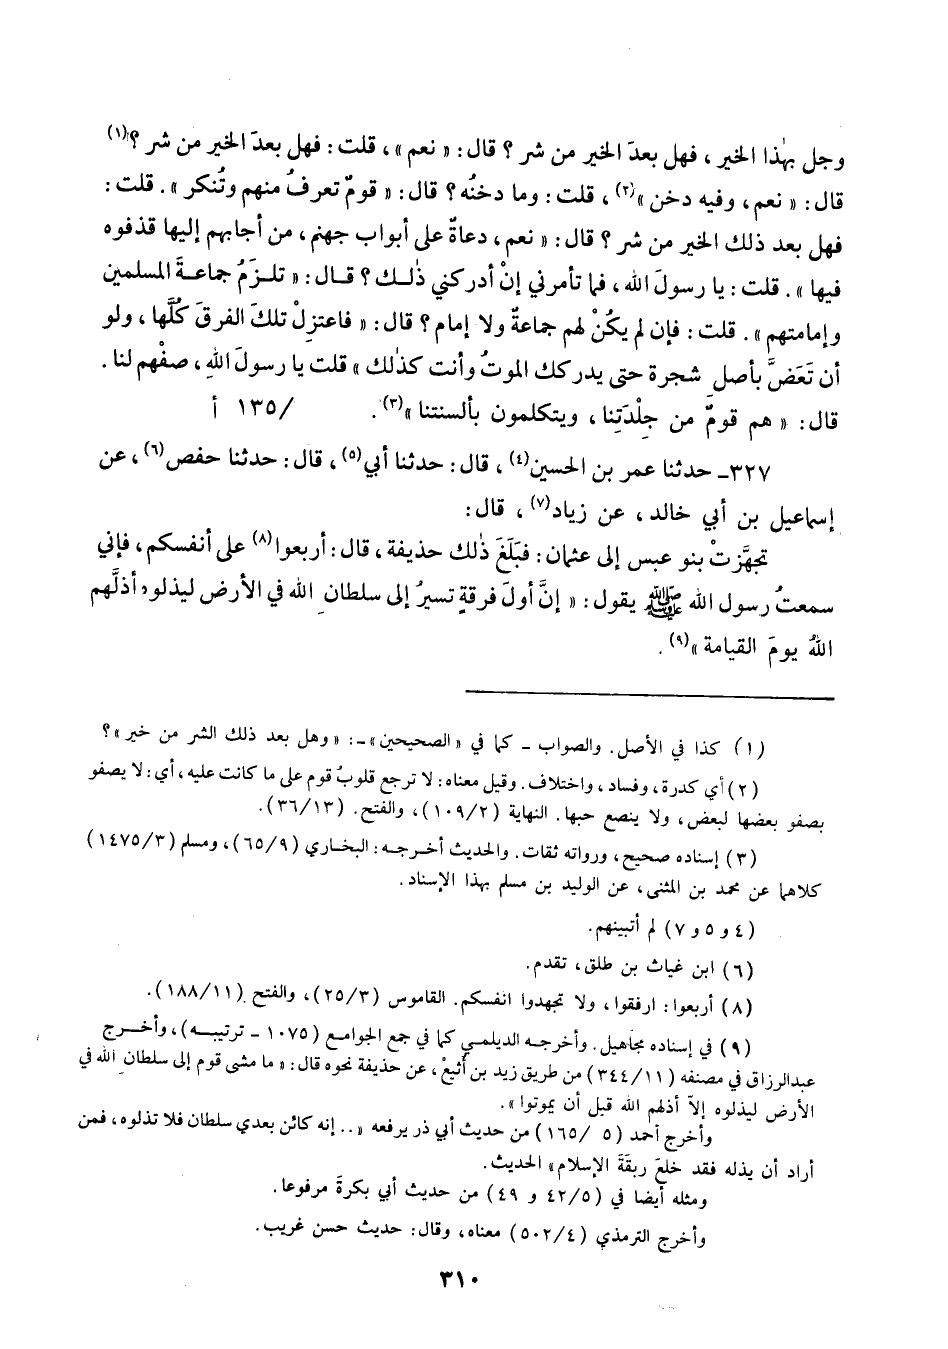 وجل بهٰذا الخير ، فهل بعدَ الخير من شر ؟ قال : « نعم » ، قلت : فهل بعدَ الخير من شر ؟(١)
قال : « نعم ، وفيه دخن »(٢) ، قلت : وما دخنُه ؟ قال : « قومٌ تعرفُ منهم وتُنكر » . قلت :
فهل بعد ذلك الخير من شر ؟ قال : « نعم ، دعاةٌ على أبواب جهنم ، من أجابهم إليها قذفوه
فيها » . قلت : يا رسولَ الله ، فما تأمرني إنْ أدركني ذٰلك ؟ قال : « تلـزَمُ جماعـةَ المسلمين
وإمامتهم » . قلت : فإن لم يكُنْ لهم جماعةٌ ولا إمام ؟ قال : « فاعتزِلْ تلكَ الفرقَ كُلَّها ، ولو
أن تَعَضَّ بأصلِ شجرة حتى يدركك الموتُ وأنت كذلك » قلت يا رسولَ اللهِ ، صفْهم لنا .
قال : « هم قومٌ من جِلْدَتِنا ، ويتكلمون بألسنتنا »(٣) . /١٣٥ أ
٣٢٧ـ حدثنا عمر بن الحسين(٤) ، قال : حدثنا أبي(٥) ، قال : حدثنا حفص(٦) ، عن
إسماعيل بن أبي خالد ، عن زياد(٧) ، قال :
تجهَّزتْ بنو عبس إلى عثمان : فبَلَغَ ذٰلك حذيفة ، قال : أربعوا(٨) على أنفسكم ، فإني
سمعتُ رسول الله ﷺ يقول : « إنَّ أولَ فرقةٍ تسيرُ إلى سلطانِ الله في الأرض ليذلوه أذلَّهم
اللهُ يومَ القيامة »(٩) .
(١) كذا في الأصل. والصواب ـ كما في «الصحيحين» ـ: «وهل بعد ذلك الشر من خير»؟
(٢) أي كدرة ، وفساد ، واختلاف . وقيل معناه : لا ترجع قلوبُ قوم على ما كانت عليه ، أي : لا يصفو
بصفو بعضها لبعض ، ولا ينصع حبها. النهاية (١٠٩/٢)، والفتح. (٣٦/١٣).
(٣) إسناده صحيح ، ورواته ثقات. والحديث أخـرجـه : البخاري (٦٥/٩)، ومسلم (١٤٧٥/٣)
كلاهما عن محمد بن المثنى ، عن الوليد بن مسلم بهذا الإسناد.
(٤ و ٥ و ٧) لم أتبينهم.
(٦) ابن غياث بن طلق ، تقدم.
(٨) أربعوا : ارفقوا ، ولا تجهدوا انفسكم. القاموس (٢٥/٣)، والفتح (١٨٨/١١).
(٩) في إسناده مجاهيل. وأخرجـه الديلمـي كما في جمع الجوامـع (١٠٧٥ ـ ترتيبـه)، وأخـرج
عبدالرزاق في مصنفه (٣٤٤/١١) من طريق زيد بن أُثيع ، عن حذيفة نحوه قال : « ما مشى قوم إلى سلطانِ الله في
الأرض ليذلوه إلاّ أذلهم الله قبل أن يموتوا ».
وأخرج أحمد (٥ /١٦٥) من حديث أبي ذر يرفعه «.. إنه كائن بعدي سلطان فلا تذلوه ، فمن
أراد أن يذله فقد خلعَ ربقَةَ الإسلام» الحديث.
ومثله أيضا في (٤٢/٥ و ٤٩) من حديث أبي بكرةَ مرفوعا.
وأخرج الترمذي (٥٠٢/٤) معناه ، وقال : حديث حسن غريب.
٣١٠